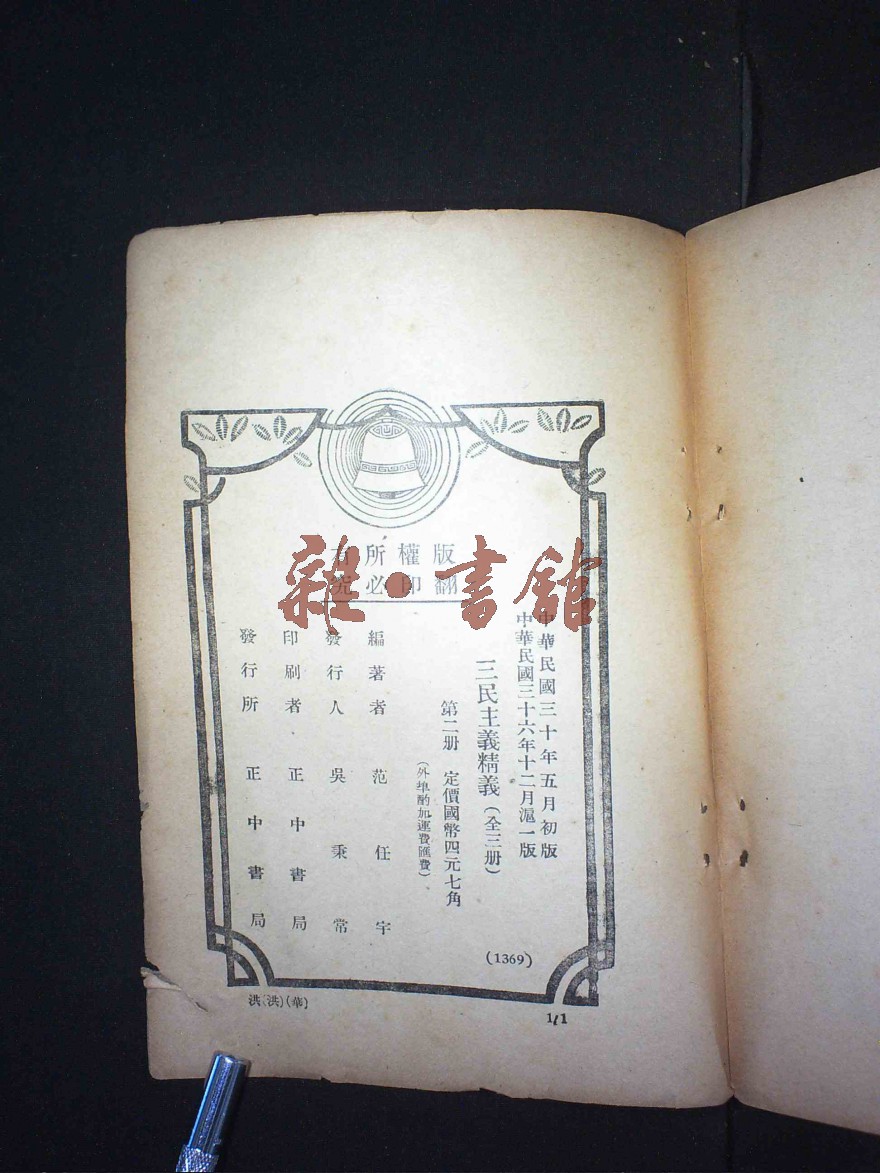 版權所有
翻印必究
中華民國三十年五月初版
中華民國三十六年十二月滬一版
三民主義精義(全三册)
第二册 定價國幣四元七角
(外埠酌加運費匯費)
編著者 范任宇
發行人 吳秉常
印刷者 正中書局
發行所 正中書局
(1369)
洪(洪)(華)
1/1
雜·書館